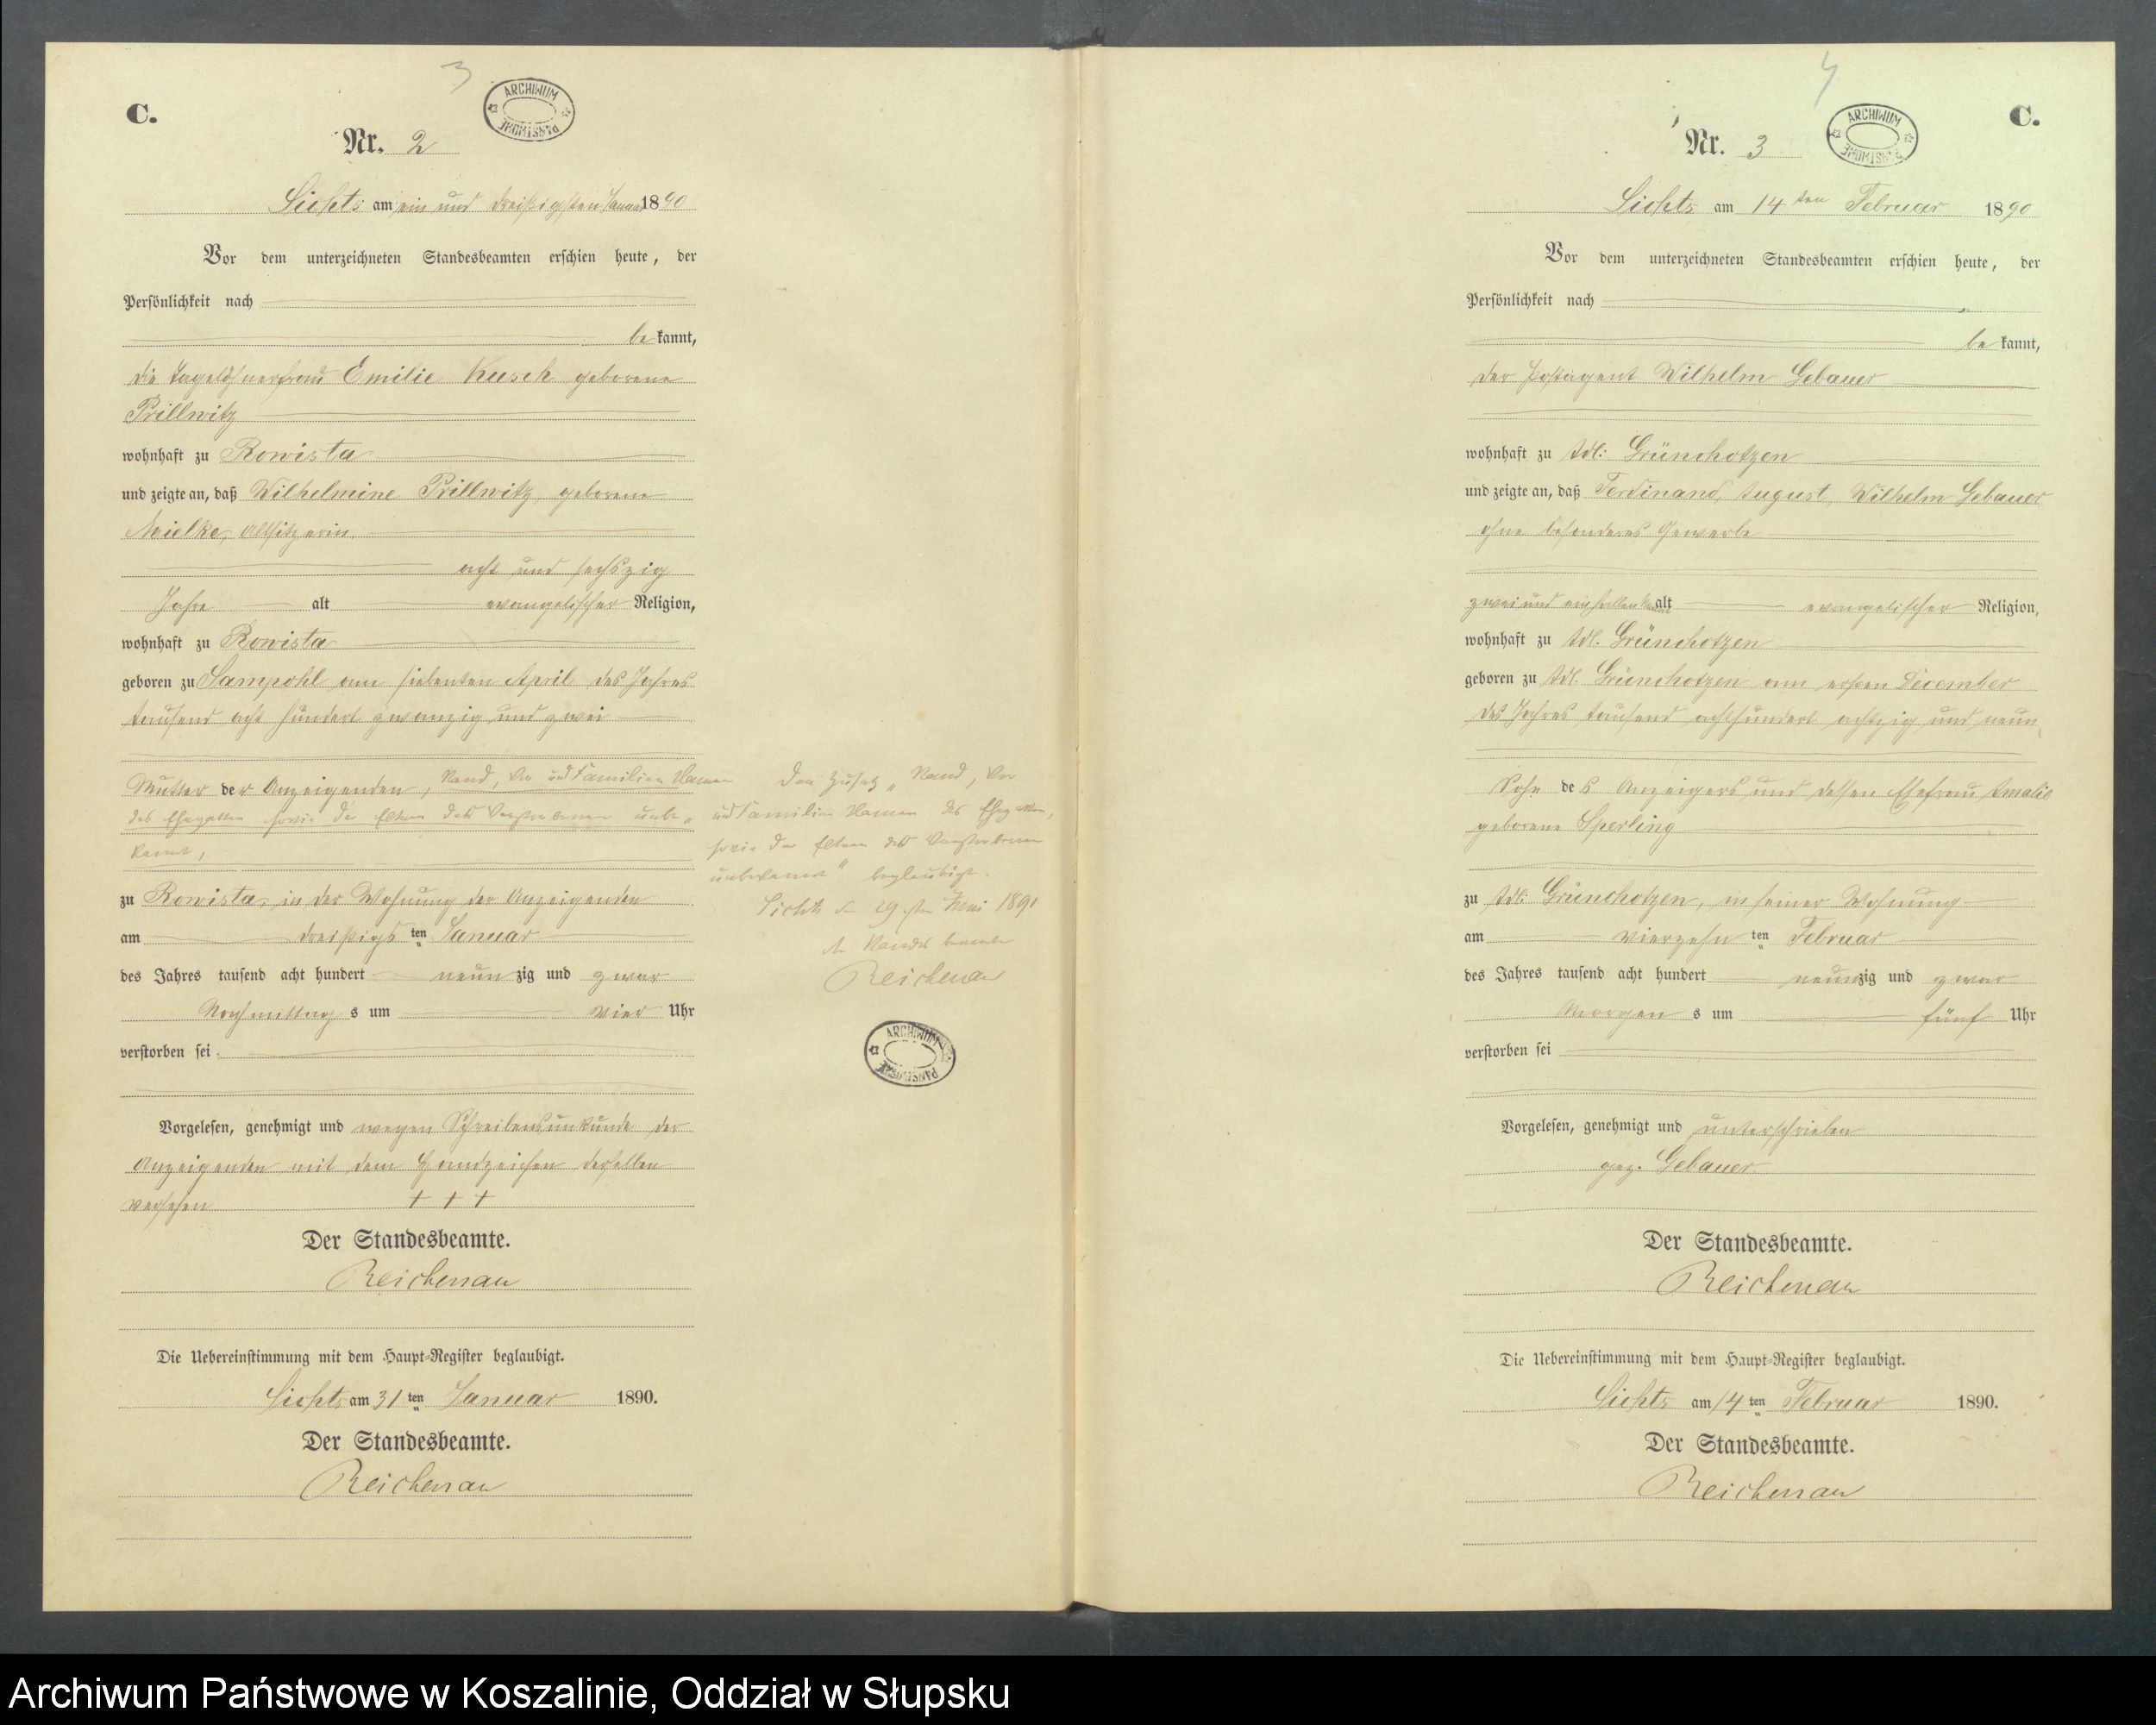 3
C.
ARCHIWUM PAŃSTWOWE
Nr. 2
Lichts am ein und dreißigsten Januar 1890
Vor dem unterzeichneten Standesbeamten erschien heute, der
Persönlichkeit nach
be kannt,
die Tagelöhnerfrau Emilie Kusch geborene
Prillwitz
wohnhaft zu Rowista
und zeigte an, daß Wilhelmine Prillwitz, geborene
Mielke, Altsitzerin,
acht und sechszig
Jahre alt evangelischer Religion,
wohnhaft zu Rowista
geboren zu Sampohl am siebenten April des Jahres
tausend acht hundert zwanzig und zwei
Mutter der Anzeigenden, Stand, Vor und Familien Namen
des Ehegatten sowie der Eltern der Verstorbenen unbe-
kannt,
zu Rowista, in der Wohnung der Anzeigenden
am dreißigs ten Januar
des Jahres tausend acht hundert neun zig und zwar
Nachmittag s um vier Uhr
verstorben sei
Vorgelesen, genehmigt und wegen Schreibensunkunde der
Anzeigenden mit dem Handzeichen derselben
versehen + + +
Der Standesbeamte.
Reichenau
Die Uebereinstimmung mit dem Haupt-Register beglaubigt.
Lichts am 31 ten Januar 1890.
Der Standesbeamte.
Reichenau
Den Zusatz „Stand, Vor
und Familien Namen des Ehegatten,
sowie der Eltern der Verstorbenen
unbekannt" beglaubigt.
Lichts den 29 sten Juni 1891
Der Standesbeamte
Reichenau
ARCHIWUM PAŃSTWOWE
4
C.
ARCHIWUM PAŃSTWOWE
Nr. 3
Lichts am 14 ten Februar 1890
Vor dem unterzeichneten Standesbeamten erschien heute, der
Persönlichkeit nach
be kannt,
der Postagent Wilhelm Gebauer
wohnhaft zu Adl: Grünchotzen
und zeigte an, daß Ferdinand, August, Wilhelm Gebauer
ohne besonderes Gewerbe
zwei und ein halben Monat alt evangelischer Religion,
wohnhaft zu Adl. Grünchotzen
geboren zu Adl. Grünchotzen am ersten December
des Jahres tausend achthundert achtzig und neun,
Sohn des Anzeigers und dessen Ehefrau Amalie
geborene Sperling
zu Adl: Grünchotzen, in seiner Wohnung
am vierzehn ten Februar
des Jahres tausend acht hundert neunzig und zwar
Morgen s um fünf Uhr
verstorben sei
Vorgelesen, genehmigt und unterschrieben
gez. Gebauer.
Der Standesbeamte.
Reichenau
Die Uebereinstimmung mit dem Haupt-Register beglaubigt.
Lichts am 14 ten Februar 1890.
Der Standesbeamte.
Reichenau
Archiwum Państwowe w Koszalinie, Oddział w Słupsku